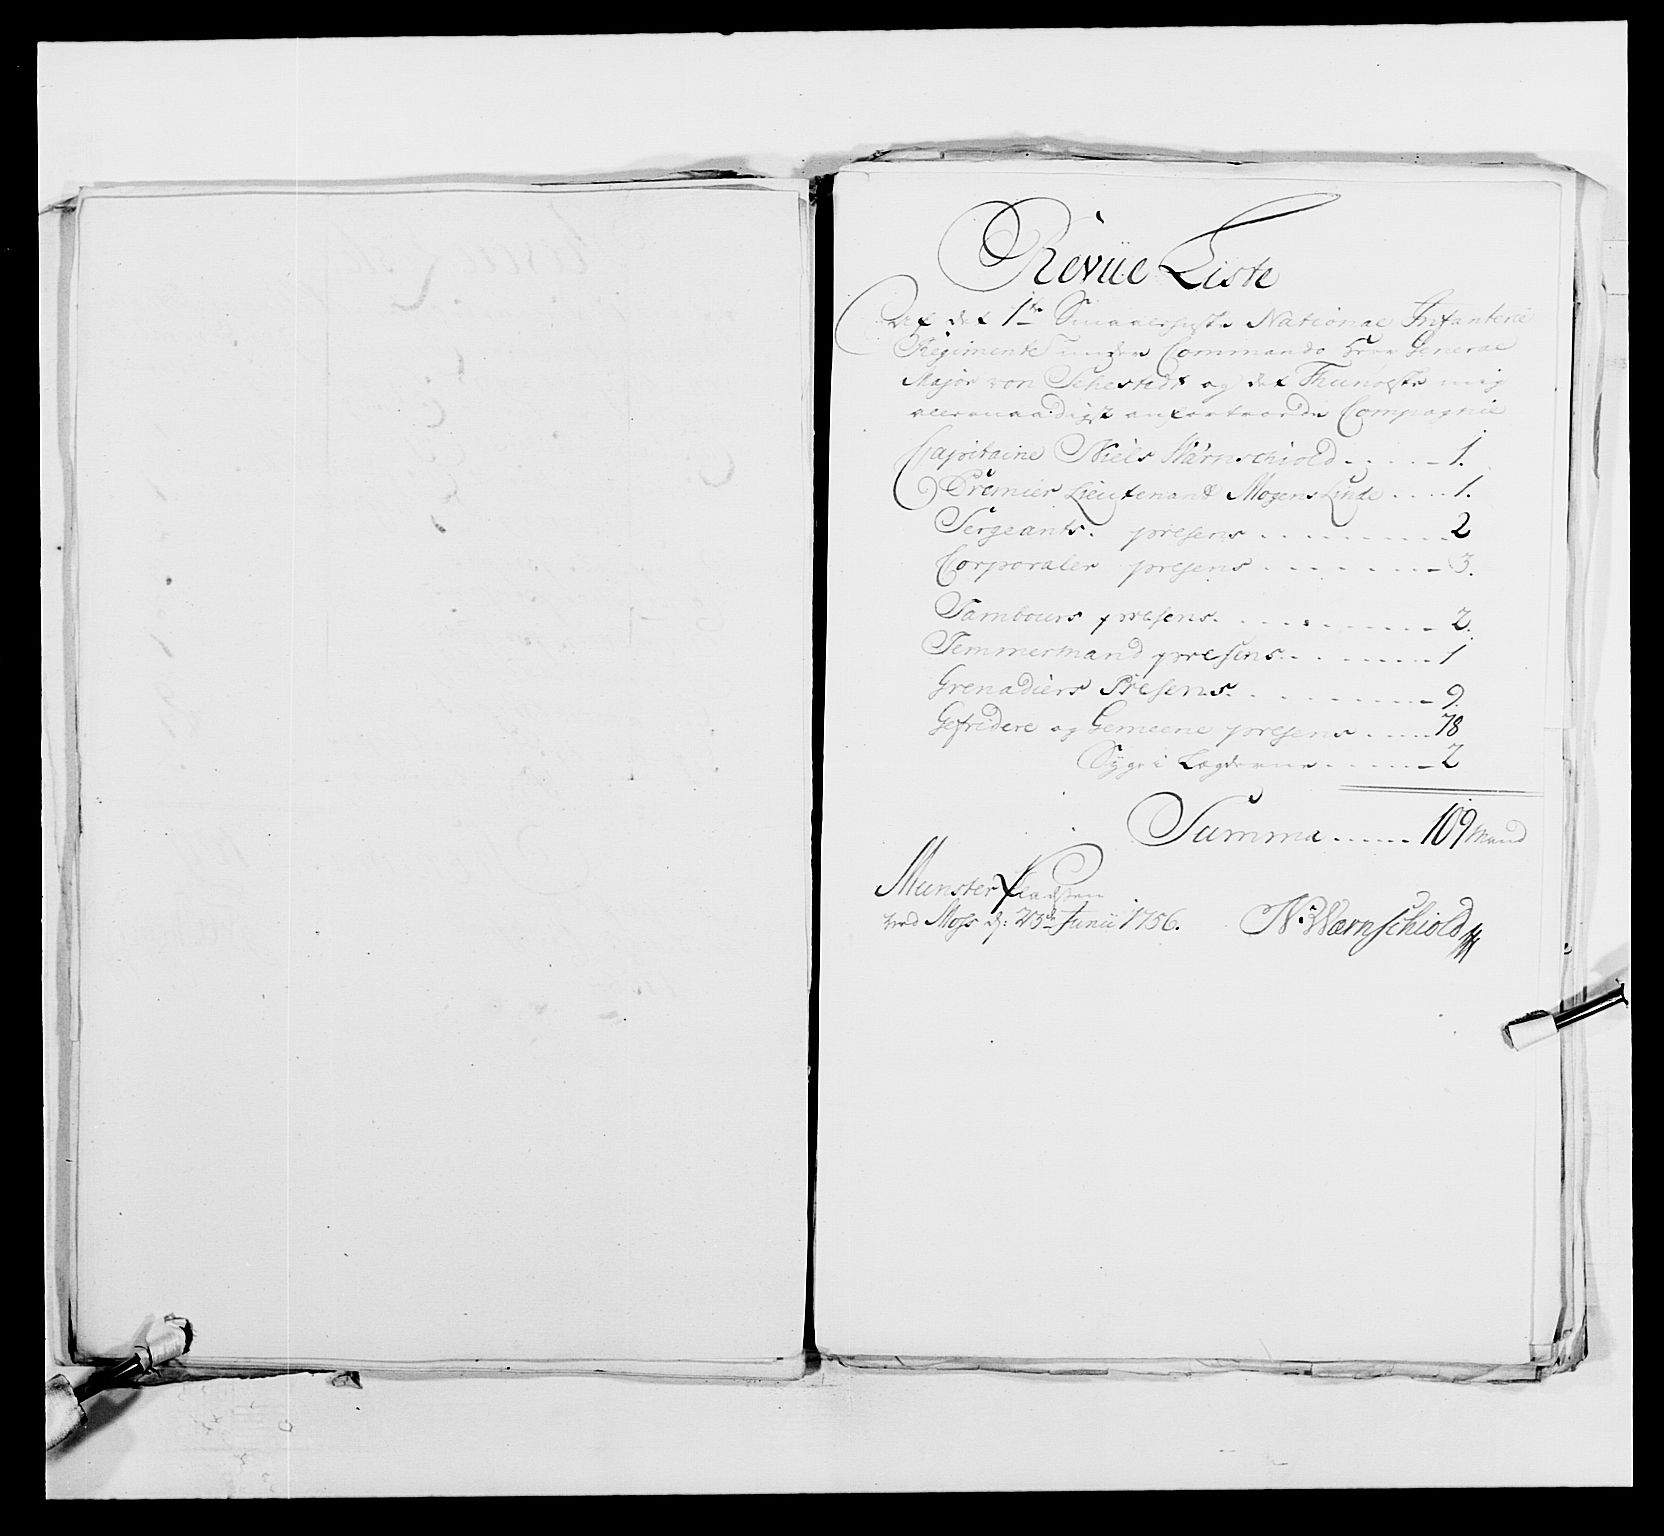 Revüe Liste
Over det 1te Smaalehnske National Infanterie
Regimente under Commando Herr General
Major von Sehestedt og det Thunöeske mig
allernaadigst anfortroede Compagnie
Capitaine Niels Wärnschiold - - - - - 1.
Premier Lieutenant Mogens Linde . . . . 1.
Sergeants. presens . . . . . . . . . 2
Corporaler presens . . . . . . . . 3.
Tambours presens. . . . . . . . . 2.
Temmermand presens. - . . - - - - 1
Grenadiers Presens. . . . . . - - - 9.
Gefridere og Gemeene presens . . . . . 78
Syge i Lægderne - - - - - - 2
Summa - - - - - - 109 Mand
Munster Pladsen
ved Moss d: 25de Junii 1756.
N: Wærnschiold